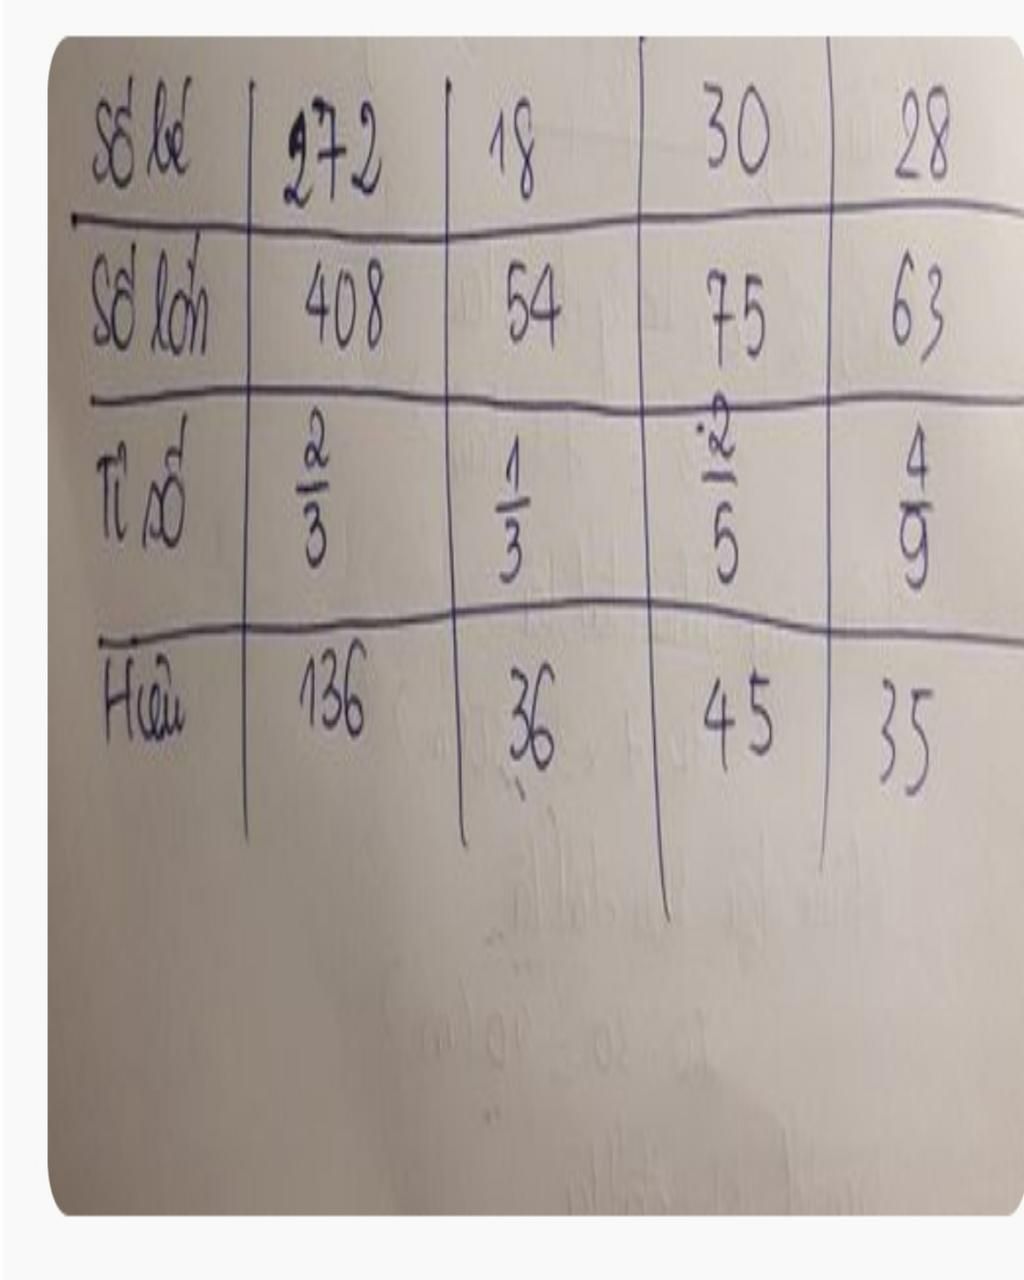 Số bé 272 18 30 28
Số lớn 408 54 75 63
Tỉ số 2/3 1/3 2/5 4/9
Hiệu 136 36 45 35